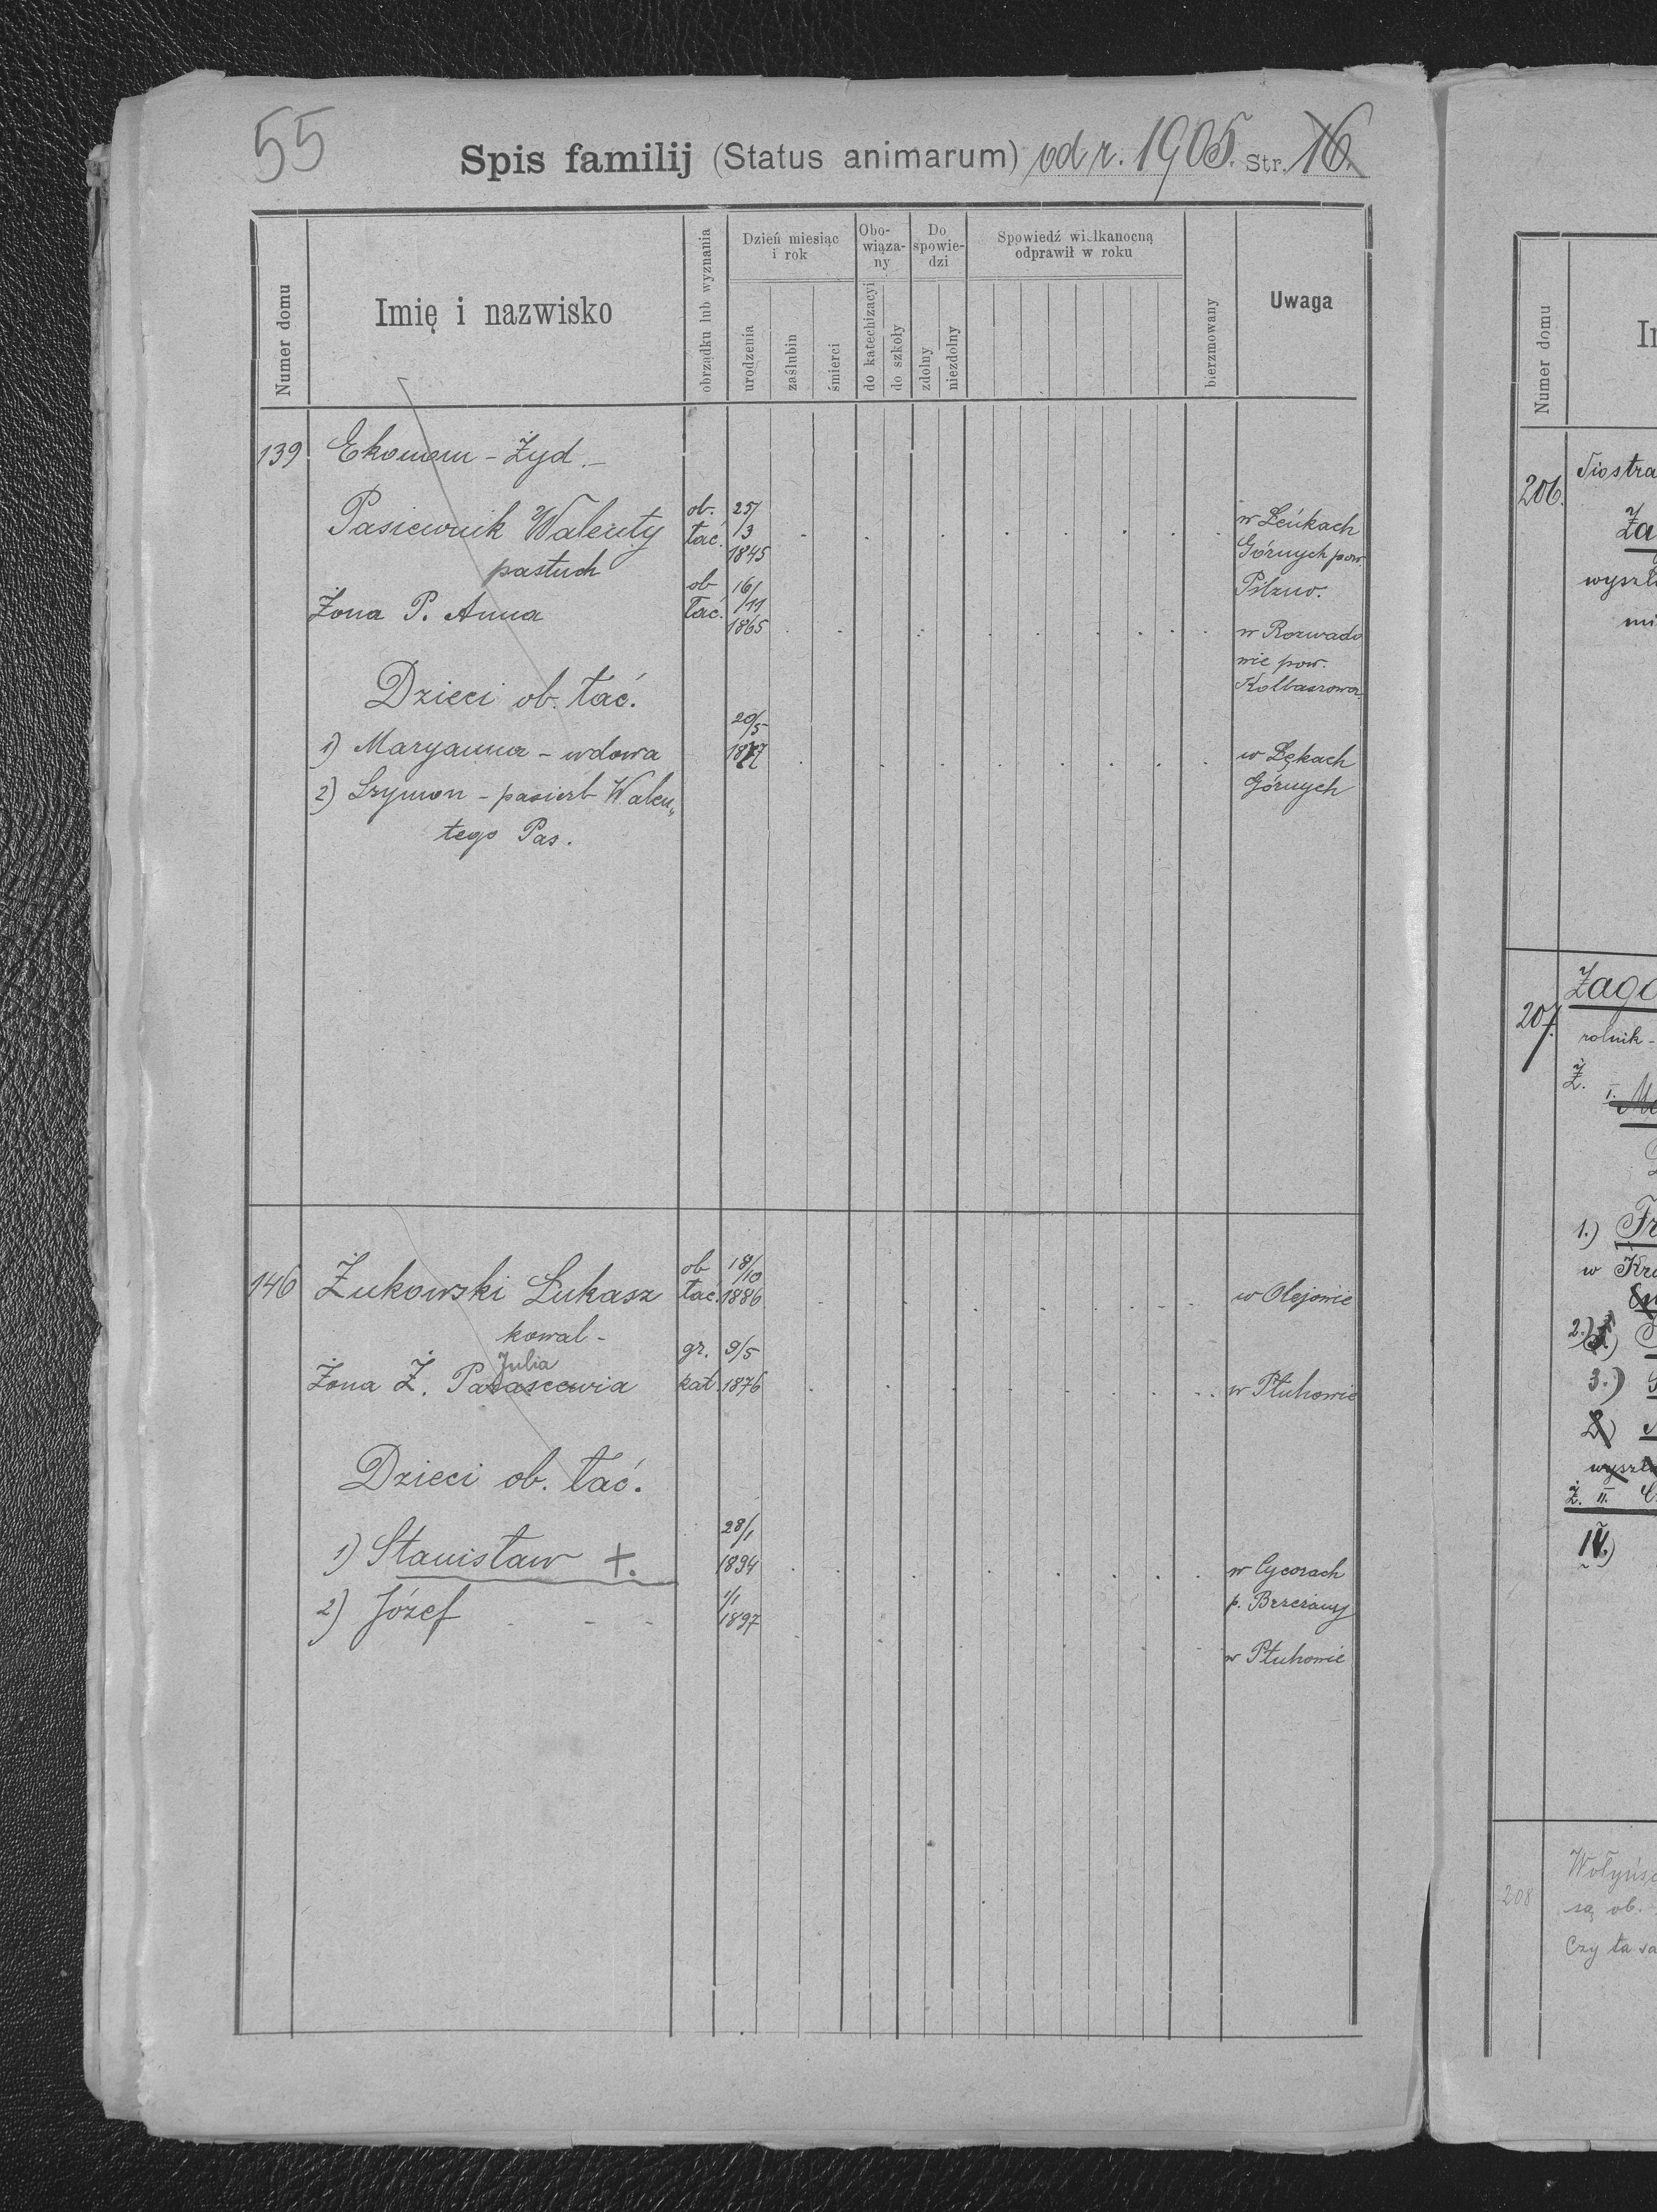 55
Spis familij (Status animarum) od r. 1905. Str. 16.
Numer domu
Imię i nazwisko
obrządku lub wyznania
Dzień miesiąc i rok
urodzenia
zaślubin
śmierci
Obo-
wiąza-
ny
do katechizacyi
do szkoły
Do
spowie-
dzi
zdolny
niezdolny
Spowiedź wielkanocną
odprawił w roku
bierzmowany
Uwaga
139 Ekonom - Żyd. -
Pasiewnik Walenty ob. łać. 25/3 1845 w Łeńkach
pastuch Górnych pow.
Pilzno.
Żona P. Anna ob łać. 16/11 1865 w Rozwado
wie pow.
Kolbuszowa
Dzieci ob. łać.
1) Maryanna - wdowa 20/5 1877 w Łękach
Górnych
2) Szymon - pasierb Walen„
tego Pas.
146 Żukowski Łukasz ob łać. 18/10 1886 w Olejowie
kowal -
Julia
Żona Ż. Parascewia gr. kat. 9/5 1876 w Płuhowie
Dzieci ob. łać.
1) Stanisław +. 28/1 1894 w Cycorach
p. Brzeżany
2) Józef - - 1/1 1897
w Płuhowie
Numer domu
206. Siostra
Za
wyszła
207. Zago
rolnik -
Ż.
I.
1.) Fr
w Kra
2.)
3.)
wyszła
Ż. II.
IV.)
208 Wołyńsc
są ob.
Czy ta